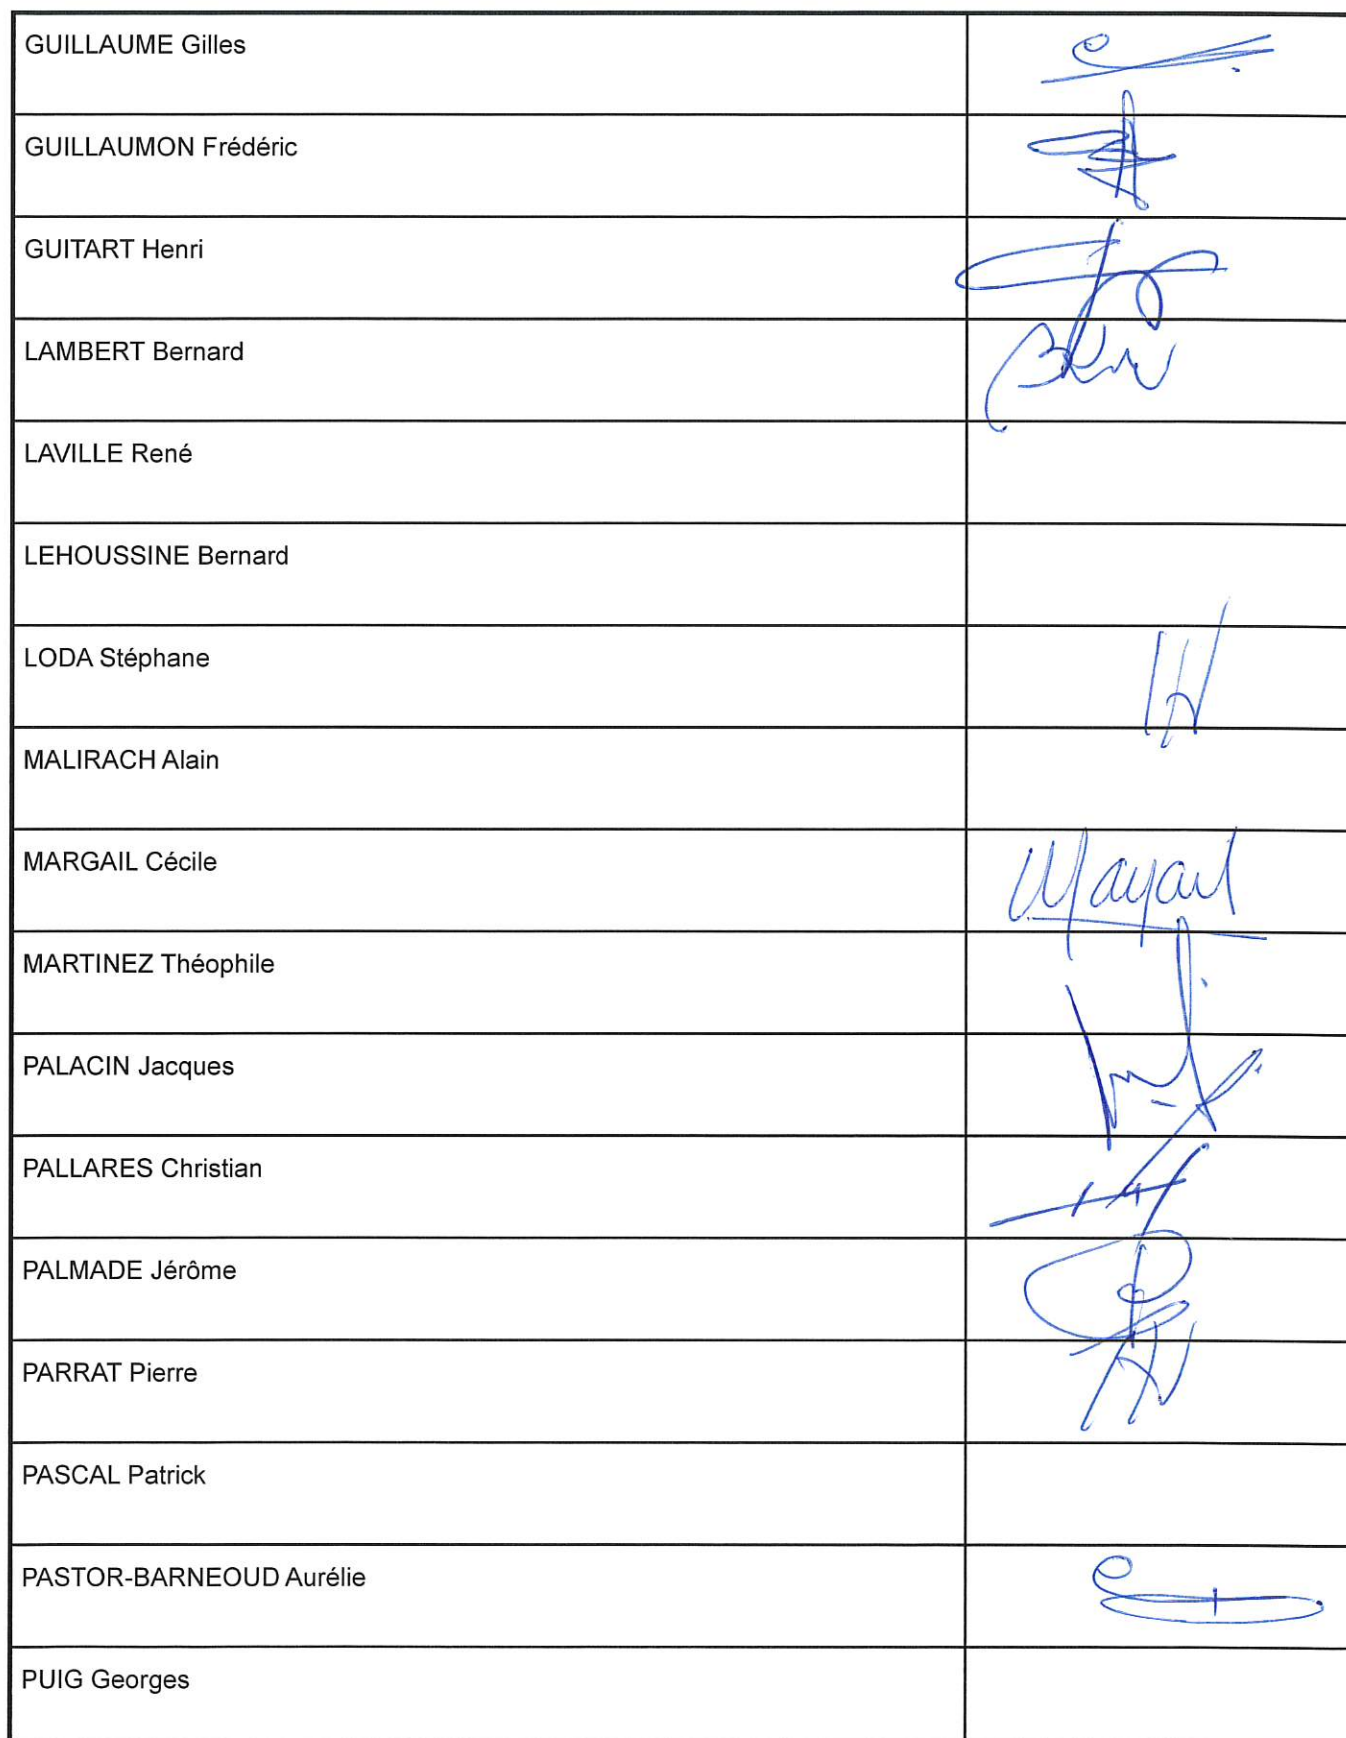 GUILLAUME Gilles
GUILLAUMON Frédéric
GUITART Henri
LAMBERT Bernard
LAVILLE René
LEHOUSSINE Bernard
LODA Stéphane
MALIRACH Alain
MARGAIL Cécile
MARTINEZ Théophile
PALACIN Jacques
PALLARES Christian
PALMADE Jérôme
PARRAT Pierre
PASCAL Patrick
PASTOR-BARNEOUD Aurélie
PUIG Georges